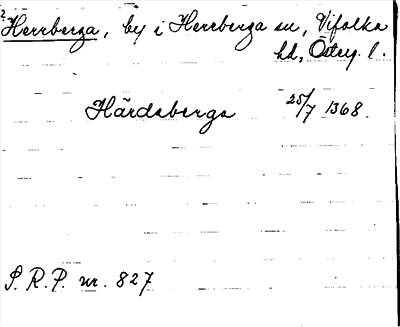 ? Herrberga, by i Herrberga sn, Vifolka
hd, Österg. l.
Härdsberga 25/7 1368
S. R. P. nr. 827